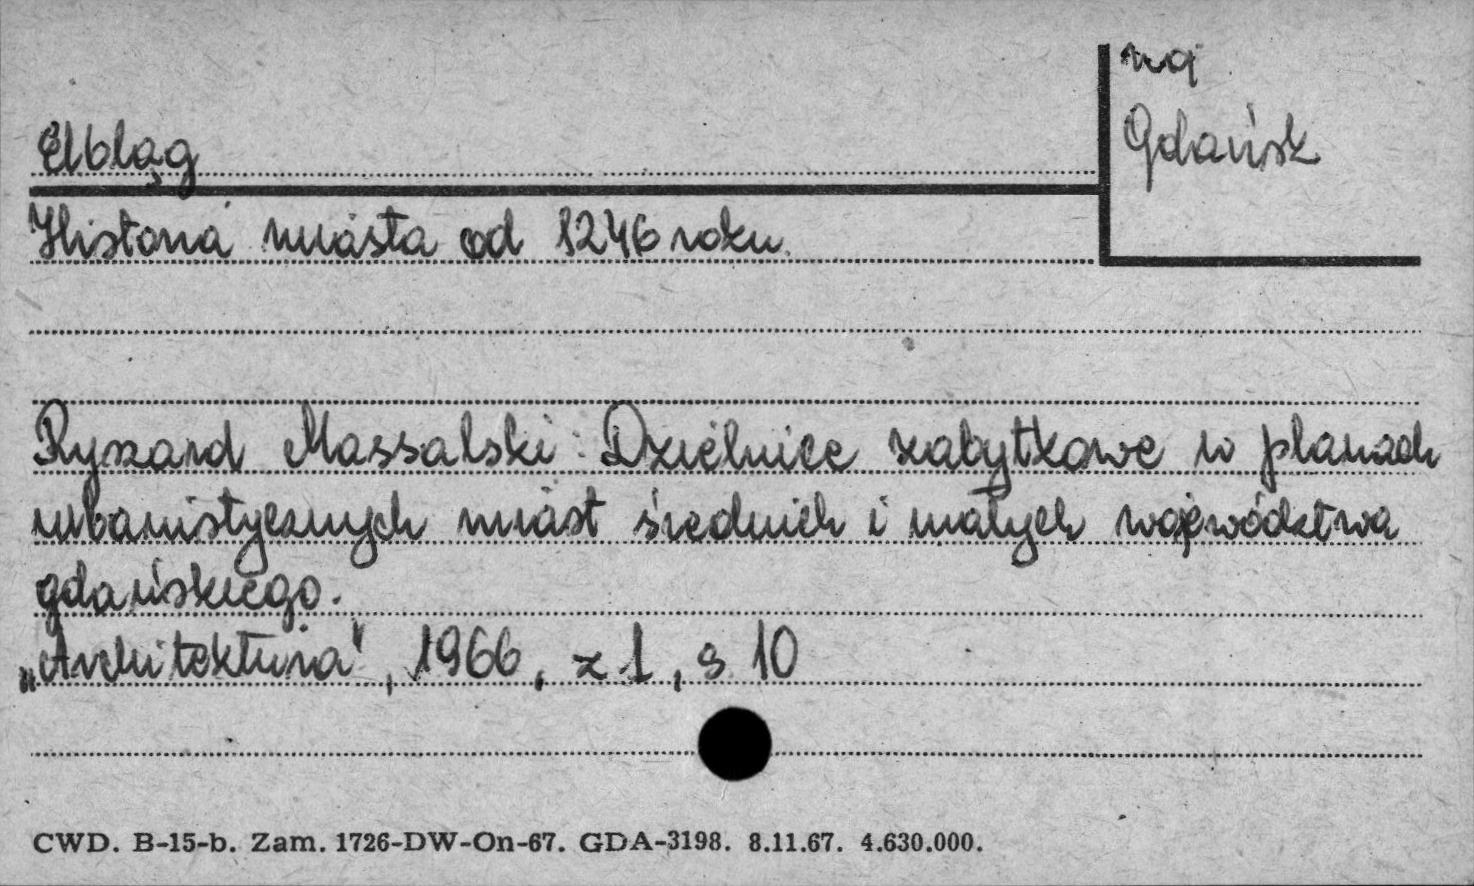 woj
Gdańsk
Elbląg
Historia miasta od 1246 roku.
Ryszard Massalski: Dzielnice zabytkowe w planach
urbanistycznych miast średnich i małych województwa
gdańskiego.
„Architektura", 1966, z 1, s 10
CWD. B-15-b. Zam. 1726-DW-On-67. GDA-3198. 8.11.67. 4.630.000.